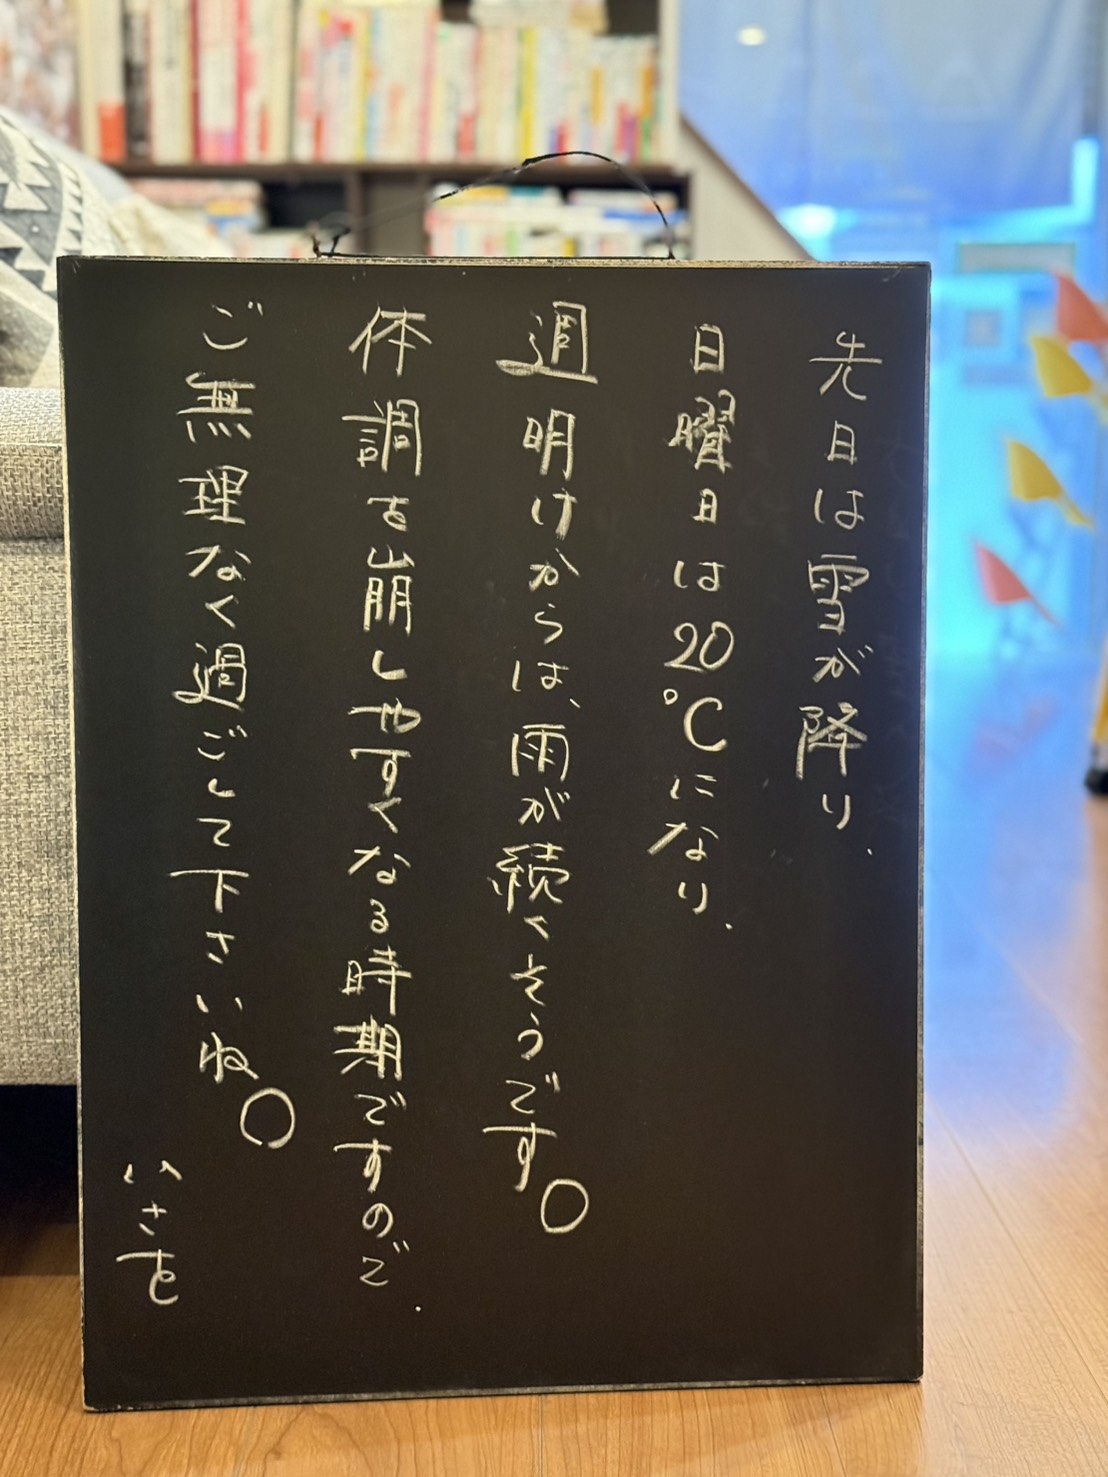 先日は雪が降り、
日曜日は20℃になり、
週明けからは、雨が続くそうです。
体調を崩しやすくなる時期ですので、
ご無理なく過ごして下さいね。
いさを